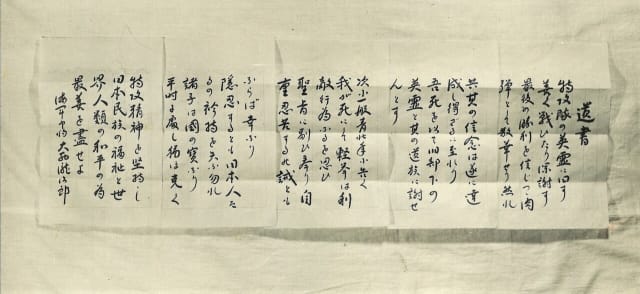 遺書
特攻隊の英霊に曰す
善く戦ひたり深謝す
最後の勝利を信じつゝ肉
彈として散華せり然れ
共其の信念は遂に達
成し得ざるに至れり
吾死を以て旧部下の
英霊と其の遺族に謝せ
んとす
次に一般青壮年に告ぐ
我が死にして軽挙は利
敵行為なるを思ひ
聖旨に副ひ奉り自
重忍苦するの誡とも
ならば幸なり
隠忍するとも日本人た
るの矜持を失ふ勿れ
諸子は國の寶なり
平時に處し猶ほ克く
特攻精神を堅持し
日本民族の福祉と世
界人類の和平の為
最善を盡せよ
海軍中將大西瀧治郎